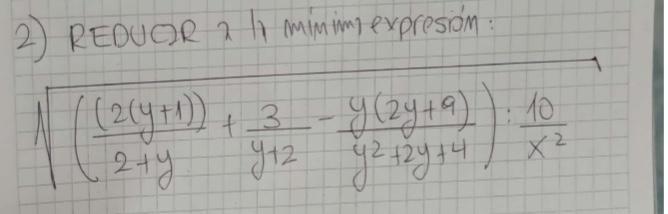 2) REDUCIR a la mínima expresión:
√((2(y+1))/(2+y) + 3/(y+2) - y(2y+9)/(y²+2y+4)) : 10/x²